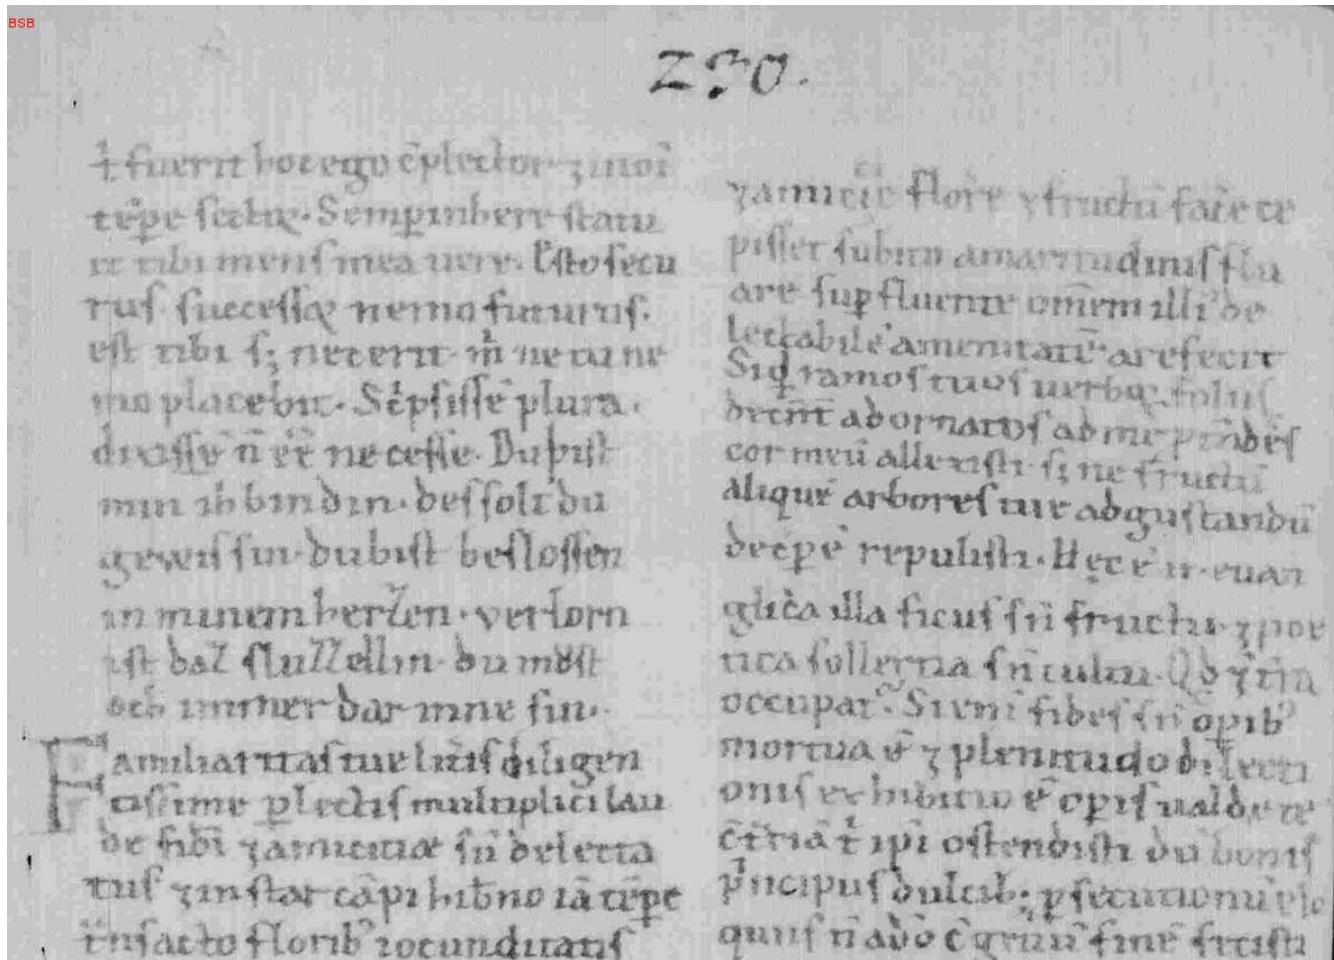 BSB
230.
fuerit hoc ego c̄plector ⁊ in oī
tēpe
Semp inherere statu
it tibi mens mea uere. Esto secu
rus successor nemo futurus.
est tibi sꝫ nec erit. m̄ ne tu ne
mo placebit. Sc̄psissē plura.
dixissē n̄ eēt necesse. Du bist
min ih bin din. des solt du
gewis sin. du bist beslossen
in minem herzen. verlorn
ist daz sluzzellin. du můst
och immer dar inne sin.
Familiaritas tue lr̄is diligen
tissime plectis multiplici lau
de fidī ⁊ amicitiæ sū delecta
tus ⁊ instar cāpi hib̄no iā tēpe
tn̄sacto florib᾽ iocunditatis
⁊ amicicie flore ⁊ fructū
pisset subito amaritudinis flu
are supfluente om̄em illi᾽ de
lectabilē amenitatē arefecit
Siqͥ ramos tuos
adornatos ad me
cor meū allexisti. sꝫ ne fructū
aliquē arbores tue ad gustandū
decꝑe repulisti. Hęc ē
euan
glīca illa ficus sn̄ fructu ⁊ poe
tica sollertia sn̄ cultu. Qd
occupat. Si eni fides sn̄ opib᾽
mortua ē ⁊ plenitudo dilecti
onis exhibitio ē opis ualde te
ipī ostendisti dū bonis
pͥncipiis dulcib; psecutionū
quiis n̄ adō c̄gruū finē fecisti